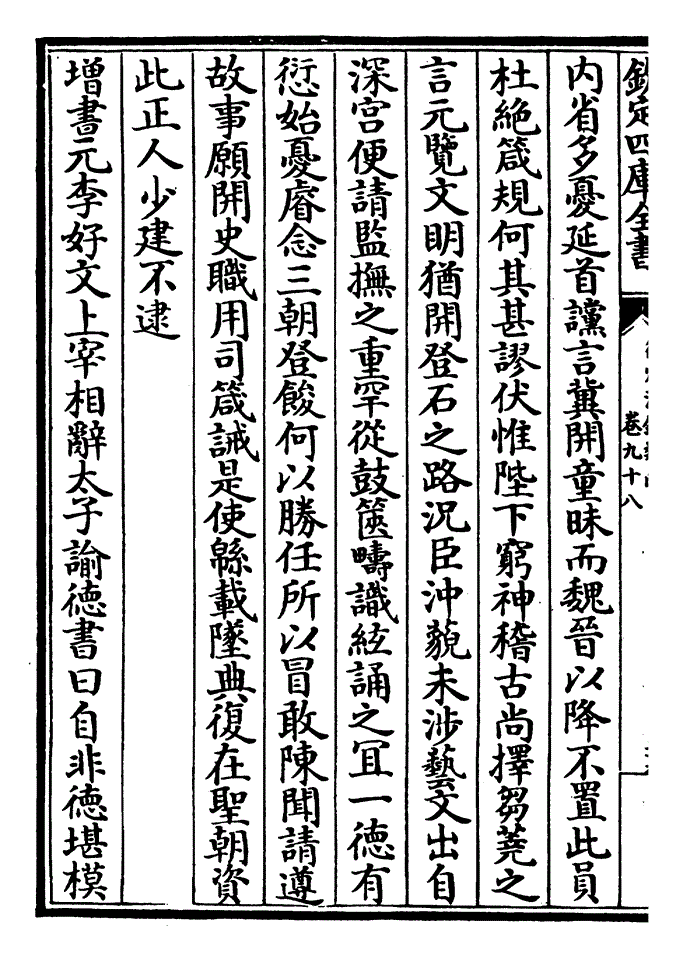 欽定四庫全書
卷九十八
内省多憂延首讜言冀開童昧而魏晉以降不置此員
杜絶箴規何其甚謬伏惟陛下窮神稽古尚擇芻蕘之
言元覽文明猶開登石之路況臣沖藐未涉藝文出自
深宫便請監撫之重罕從鼓篋疇識絃誦之宜一德有
愆始憂睿念三朝登餕何以勝任所以冒敢陳聞請遵
故事願開史職用司箴誡是使緜載墜典復在聖朝資
此正人少建不逮
增書元李好文上宰相辭太子諭德書曰自非德堪模